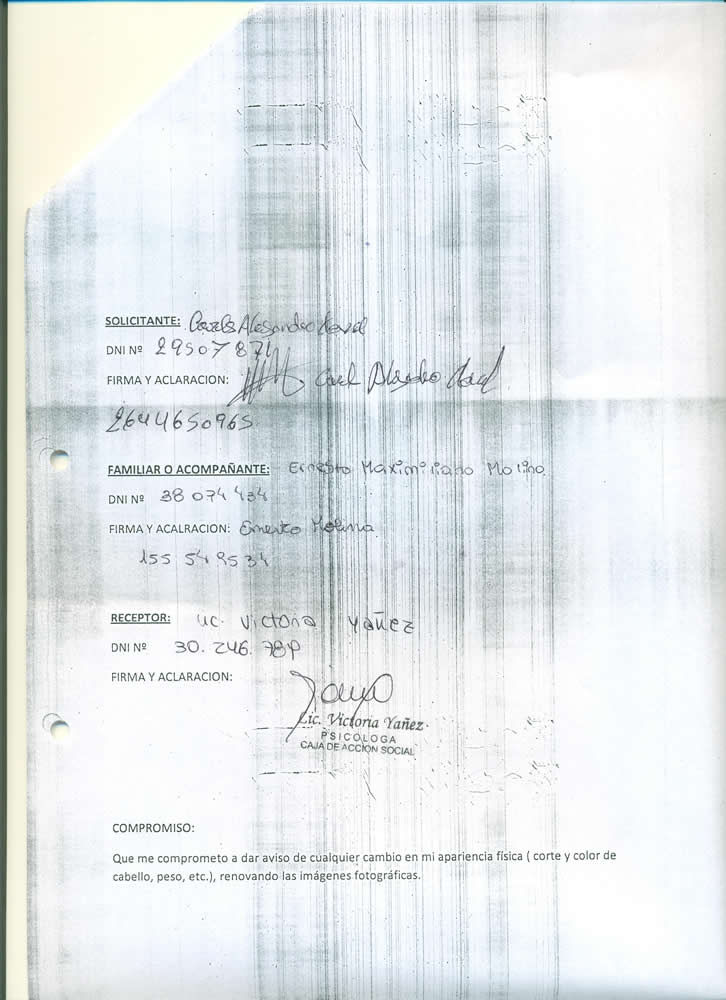 SOLICITANTE: Carlos Alejandro
DNI Nº 29507871
FIRMA Y ACLARACION:
2644650965
FAMILIAR O ACOMPAÑANTE: Ernesto Maximiliano Molina
DNI Nº 38 074 434
FIRMA Y ACALRACION: Ernesto Molina
155 549534
RECEPTOR: Lic. Victoria Yañez
DNI Nº 30.246.789
FIRMA Y ACLARACION:
Lic. Victoria Yañez
PSICOLOGA
CAJA DE ACCION SOCIAL
COMPROMISO:
Que me comprometo a dar aviso de cualquier cambio en mi apariencia física ( corte y color de
cabello, peso, etc.), renovando las imágenes fotográficas.